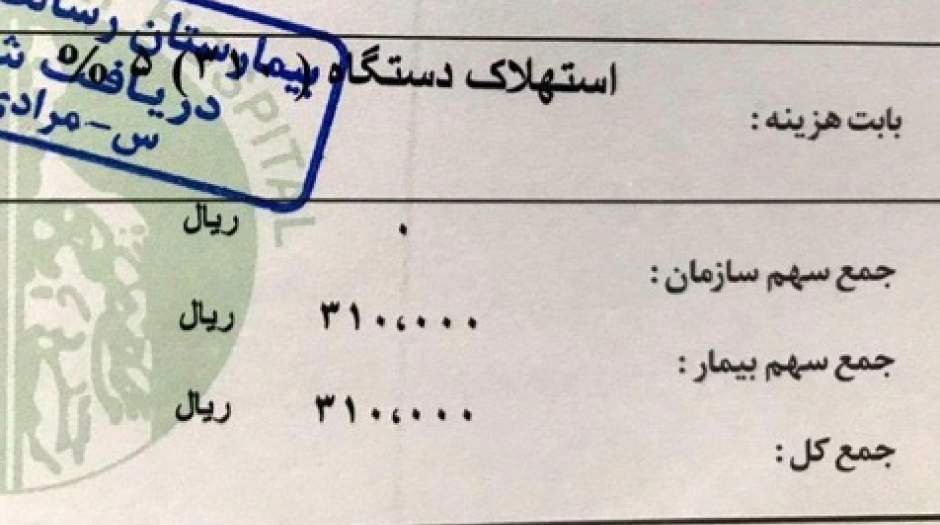 استهلاک دستگاه
بابت هزینه :
ریال ۰
جمع سهم سازمان :
ریال ۳۱۰،۰۰۰
جمع سهم بیمار :
ریال ۳۱۰،۰۰۰
جمع کل :
بیمارستان
دریافت
س-مرادی
HOSPITAL